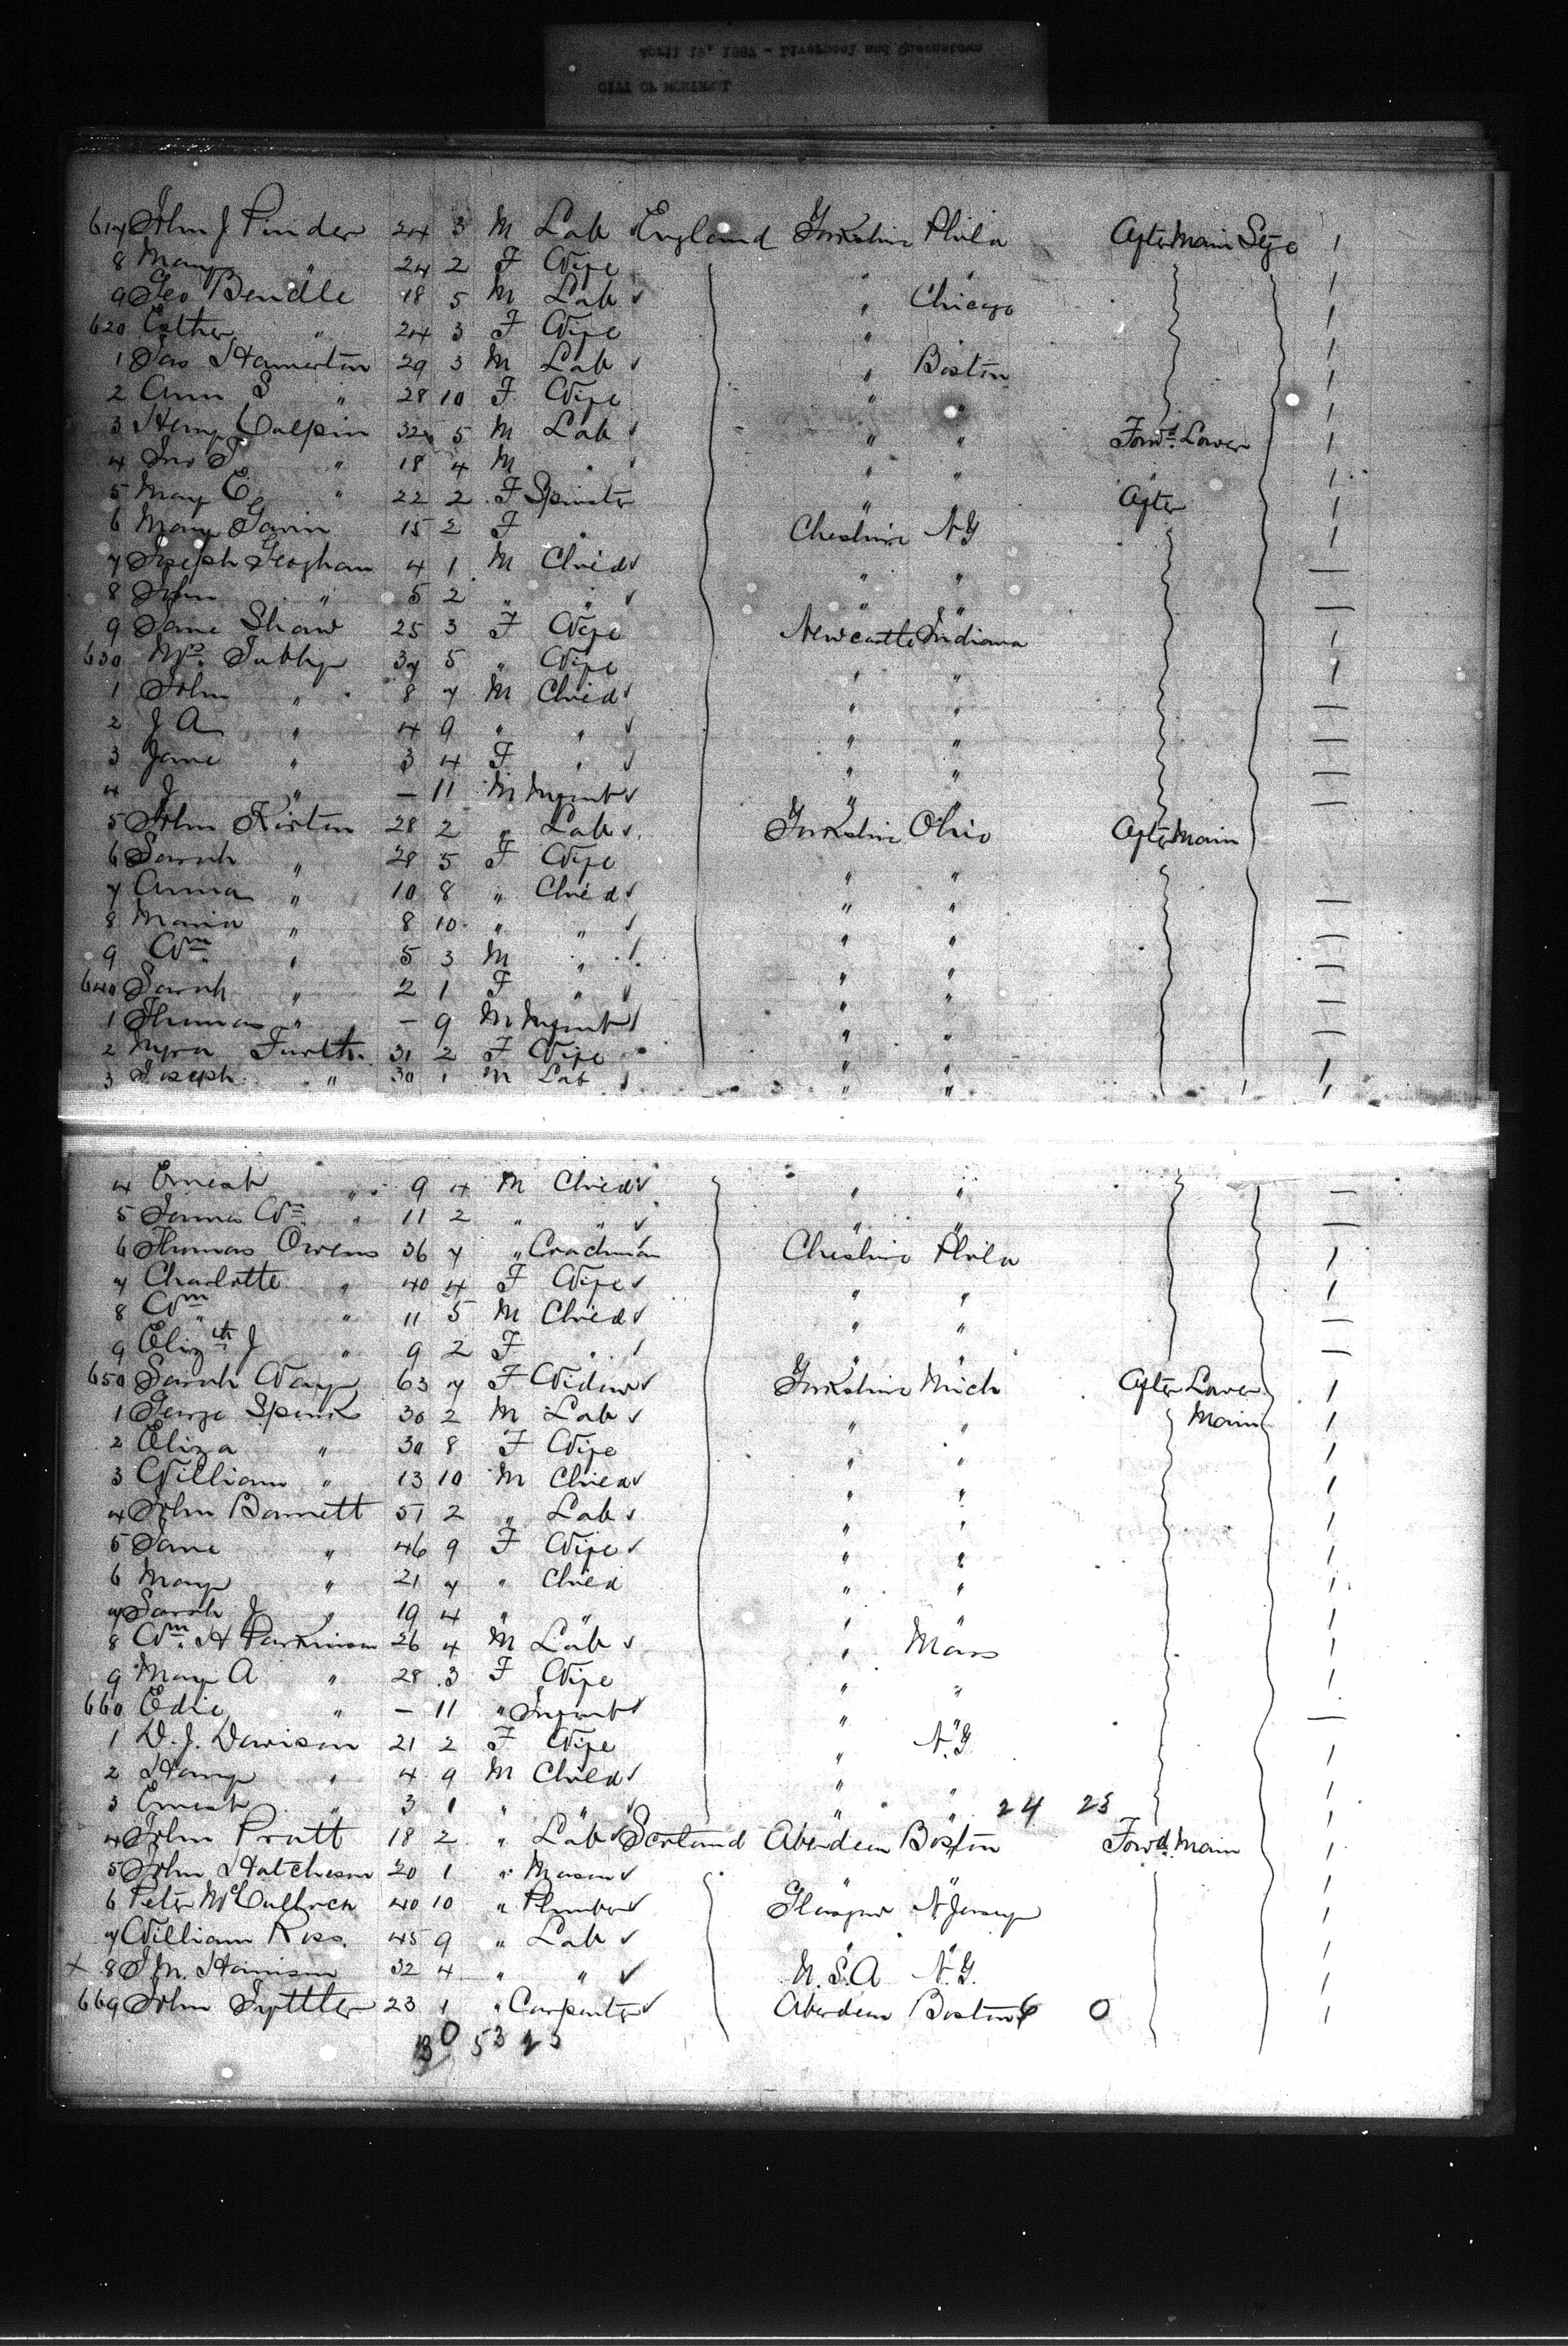 April 19, 1887 - Liverpool and Queenstown
CITY OF
617 John J Pinder 24 3 M Lab England Yorkshire Phila After Main Stge 1
8 Mary " 24 2 F Wife " " 1
9 Geo Bendle 18 5 M Lab " Chicago 1
620 Esther " 24 3 F Wife " 1
1 Jas Hamerton 29 3 M Lab " Boston 1
2 Ann S " 28 10 F Wife " " 1
3 Henry Galpin 32 5 M Lab " " Forwd Lower 1
4 Jno T " 18 4 M " " " 1
5 Mary E " 22 2 F Spinster " " After 1
6 Mary Gavin 15 2 F " Cheshire N.Y 1
7 Joseph Geoghan 4 1 M Child " " —
8 John " 5 2 " " " " —
9 Jane Shaw 25 3 F Wife Newcastle Indiana 1
630 Mrs. 37 5 " Wife " " 1
1 John " 8 7 M Child " " —
2 J A " 4 9 " " " " —
3 Jane " 3 4 F " " " —
4 J " — 11 M Infant " " —
5 John Kirton 28 2 " Lab Yorkshire Ohio After Main 1
6 Sarah " 28 5 F Wife " " 1
7 Anna " 10 8 " Child " " —
8 Maria " 8 10 " " " " —
9 Wm " 5 3 M " " " —
640 Sarah " 2 1 F " " " —
1 Thomas " — 9 M Infant " " —
2 Myra Furth. 31 2 F Wife " " 1
3 Joseph " 30 1 M Lab " " 1
4 Ernest " 9 4 M Child " " —
5 James Wm " 11 2 " " " " —
6 Thomas Owens 36 7 " Coachman Cheshire Phila 1
7 Charlotte " 40 4 F Wife " " 1
8 Wm " " 11 5 M Child " " —
9 Elizth J " 9 2 F " " " —
650 Sarah Way 63 7 F Widow Yorkshire Mich After Lower 1
1 George Spink 30 2 M Lab " " Main 1
2 Eliza " 30 8 F Wife " " 1
3 William " 13 10 M Child " " 1
4 John Barnett 51 2 " Lab " " 1
5 Jane " 46 9 F Wife " " 1
6 Mary " 21 7 " Child " " 1
7 Sarah J " 19 4 " " " " 1
8 Wm. H Parkinson 26 4 M Lab " Mass 1
9 Mary A " 28 3 F Wife " " 1
660 Edie " — 11 " Infant " " —
1 D. J. Davison 21 2 F Wife " N.Y. 1
2 Harry " 4 9 M Child " " 1
3 Ernest " 3 1 " " " " 24 25 1
4 John Pratt 18 2 " Lab Scotland Aberdeen Boston Forwd. Main 1
5 John Hatcheson 20 1 " Mason " " 1
6 Peter 40 10 " Plumber Glasgow N Jersey 1
7 William Ross. 45 9 " Lab " " 1
X 8 J M. Harrison 32 4 " " U.S.A N.Y. 1
669 John Tyttler 23 1 " Carpenter Aberdeen Boston 6 0 1